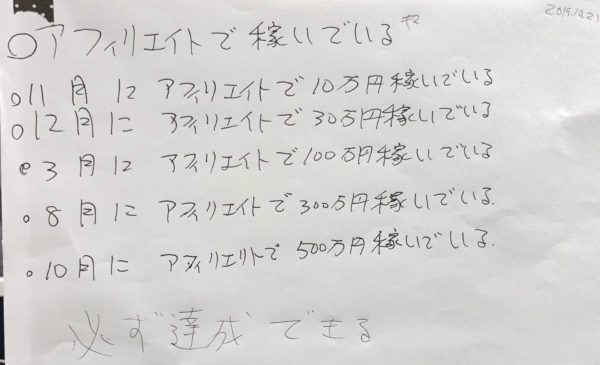 2019.10.21
○アフィリエイトで稼いでいる
○11月に アフィリエイトで10万円稼いでいる
○12月に アフィリエイトで30万円稼いでいる
○3月に アフィリエイトで100万円稼いでいる
○8月に アフィリエイトで300万円稼いでいる.
○10月に アフィリエイトで500万円稼いでいる.
必ず達成できる